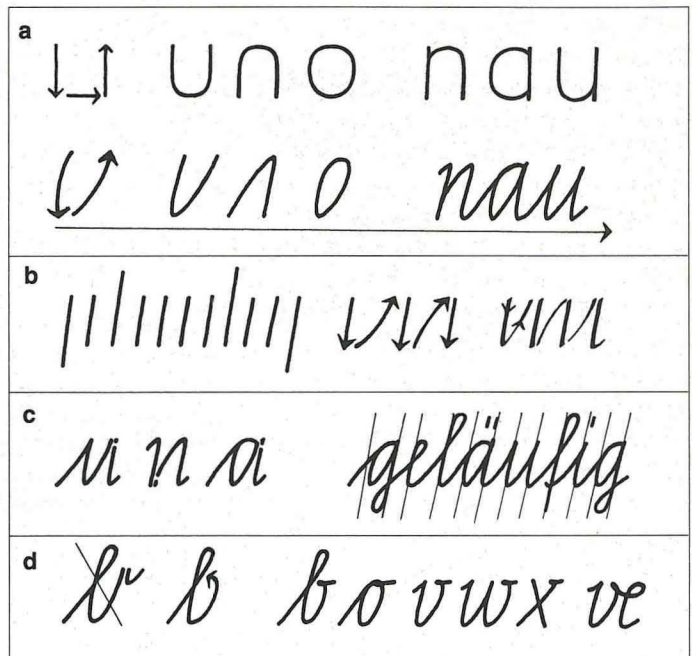 a
u n o nau
u n o nau
b
c
u n a geläufig
d
b b b o v w x ve